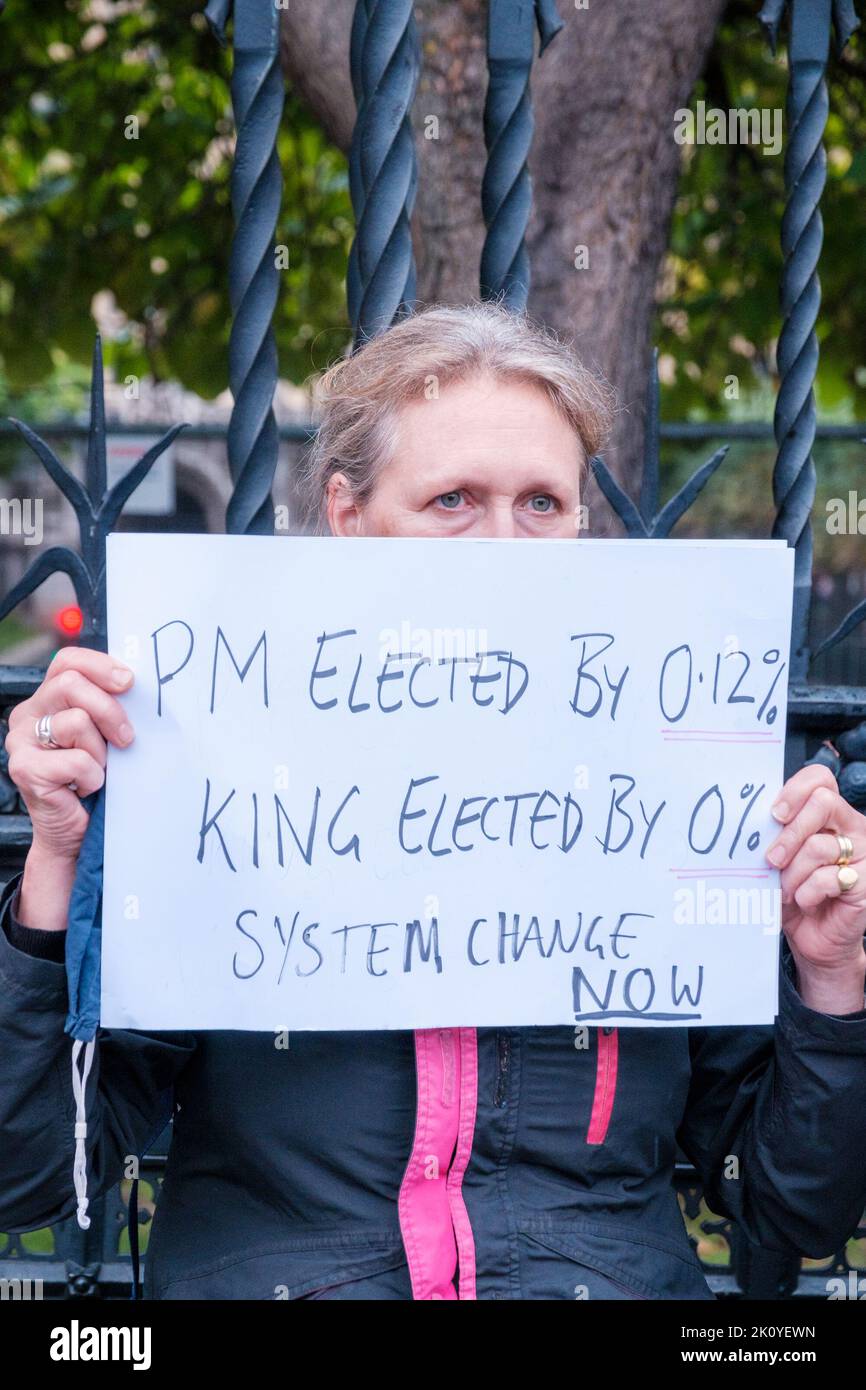 PM ELECTED BY 0.12%
KING ELECTED BY 0%
SYSTEM CHANGE
NOW
alamy
Image ID: 2K0YEWN
www.alamy.com